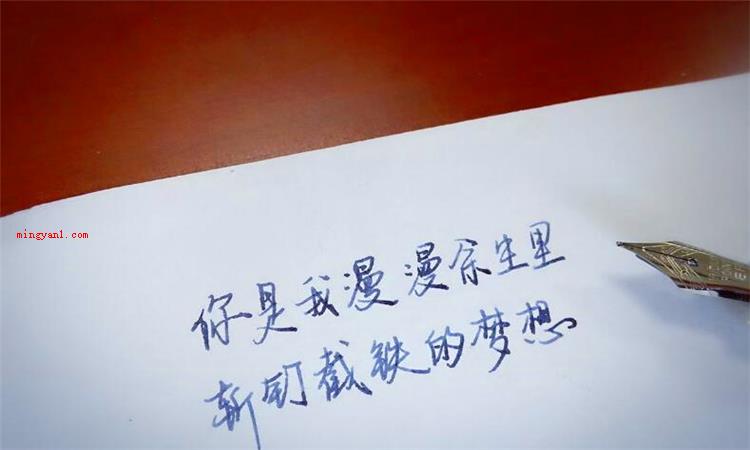 mingyan1.com
你是我漫漫余生里
斩钉截铁的梦想